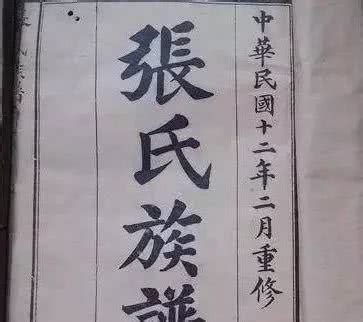 中華民國十二年二月重修
張氏族譜